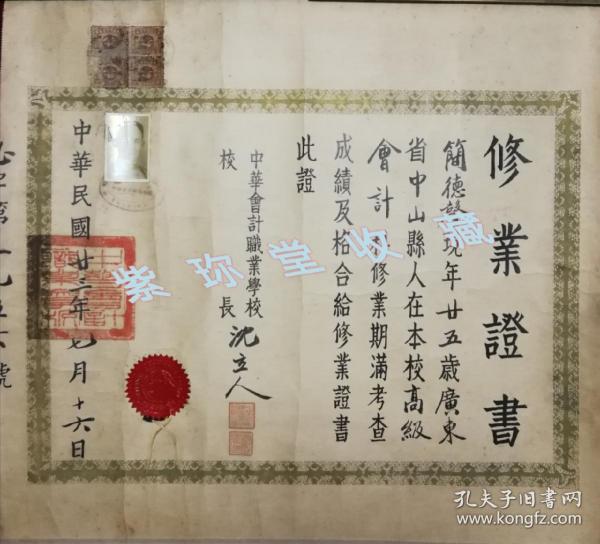 修業證書
簡德馨現年廿五歲廣東
省中山縣人在本校高級
會計科修業期滿考查
成績及格合給修業證書
此證
中華會計職業學校
校長沈立人
中華民國廿三年七月十六日
字第一九五六號
紫珎堂收藏
孔夫子旧书网
www.kongfz.com